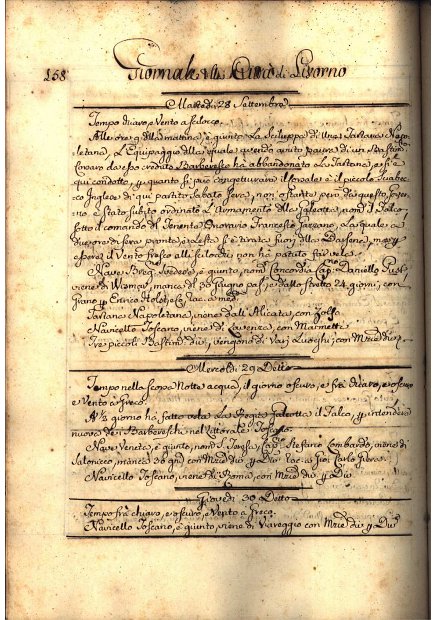 158
Giornale della Città di Livorno
Martedì 28 Settembre
Tempo chiaro, e Vento a scilocco.
Alle ore 9 della mattina, è giunto La Scialuppa di Una Tartana Napo-
letana, L'Equipaggio della quale avendo avuto paura di un Bastim.to
Corsaro da esso creduto Barbaresco ha abbandonato La Tartana, e si è
qui condotto, p quanto si può congetturare il
co Inglese di qui partito Sabato sera, non ostante però di questo,
ro è stato subito ordinato L'Armamento della Galeotta nom.a Il Falco,
sotto il comando del Tenente Onorario Francesco, La quale a
due ore di sera pronta, e s'è tirata fuori della Darsena, ma p
essere il Vento fresco alli scilocchi non ha potuto far vela.
Nave Brig. Svedese, è giunto, nom. Concordia Cap. Daniello
viene di Wismar, manca del 30 Giugno pas. e dallo stretto 24 giorni, con
Grano p Enrico
Tartane Napoletane, viene dall'Alicata, con Zolfo
Navicello Toscano, viene di Lavenza, con Marmetti
Tre piccoli Bastim. div. vengono di Varj Luoghi, con Mrzie div.
Mercoldì 29 Detto
Tempo nella scorsa Notte acqua, il giorno oscuro, e frà chiaro, e oscuro
e Vento à Greco.
A ½ giorno ha fatto vela La Regia Galeotta il Falco, p intendere
nuove dei Barbereschi nel Littorale Toscano.
Nave Veneta, è giunto, nom. S. Teresa, Cap. Stefano Lombardo, viene di
Salonicco, manca 36 gni con Mrzie div. p Div. rac. a Gio: Carlo
Navicello Toscano, viene di Roma, con Mrzie div. p Div.
Giovedì 30 Detto
Tempo frà chiaro, e oscuro, e Vento à Greco.
Navicello Toscano, è giunto, viene di Viareggio con Mrzie div. p Div.